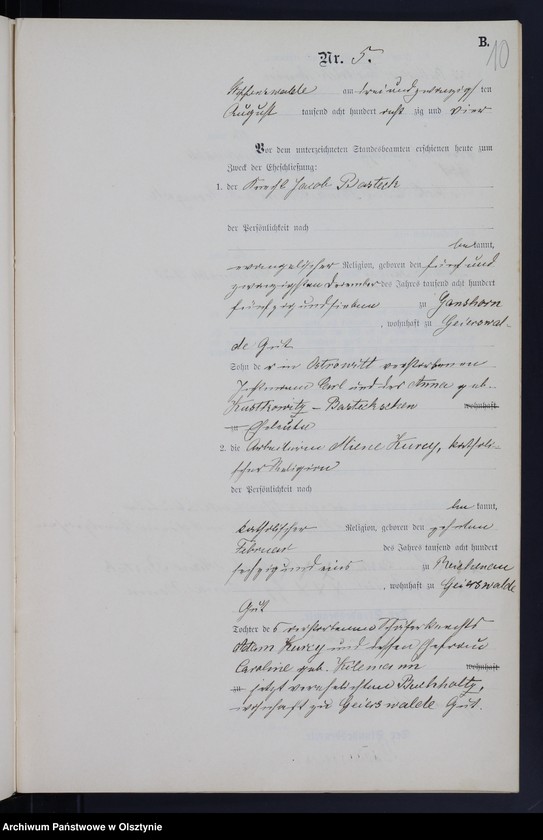 B.
10
Nr. 5.
am drei und zwanzigsten
August tausend acht hundert acht zig und vier
Vor dem unterzeichneten Standesbeamten erschienen heute zum
Zweck der Eheschließung:
1. der Knecht Jacob Basteck
der Persönlichkeit nach
bekannt,
evangelischer Religion, geboren den fünf und
zwanzigsten December des Jahres tausend acht hundert
fünfzig und sieben zu Ganshorn
, wohnhaft zu Geierswal-
de Gut
Sohn der in Ostrowitt verstorbenen
Carl und der Anna geb.
Basteckschen wohnhaft
zu Eheleute
2. die Arbeiterin Miene Kurey, katholi-
scher Religion
der Persönlichkeit nach
bekannt,
katholischer Religion, geboren den zehnten
Februar des Jahres tausend acht hundert
sechzig und eins zu Reichenau
, wohnhaft zu Geierswalde
Gut
Tochter des verstorbenen Schäferknechts
Adam Kurey und dessen Ehefrau
Caroline geb. wohnhaft
zu jetzt verehelichten Buchholtz,
wohnhaft zu Geierswalde Gut.
Archiwum Państwowe w Olsztynie